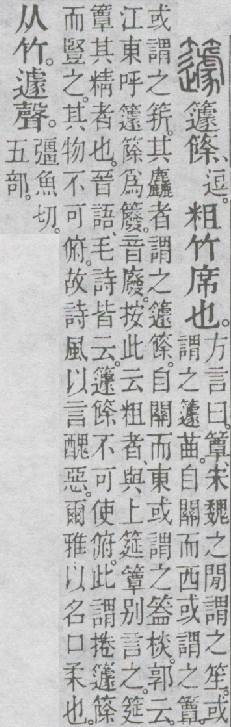 籧篨、逗。粗竹席也。
方言曰。簟、宋魏之閒謂之笙。或
謂之籧曲。自關而西或謂之簟。
或謂之䇷。其麤者謂之籧篨。自關而東或謂之棪。郭云。
江東呼籧篨爲䉬。音廢。按此云粗者、與上筵簟別言之。筵
簟其精者也。晉語、毛詩皆云。籧篨不可使俯。此謂捲籧篨
而豎之。其物不可俯。故詩風以言醜惡。爾雅以名口柔也。
从竹。遽聲。
彊魚切。
五部。